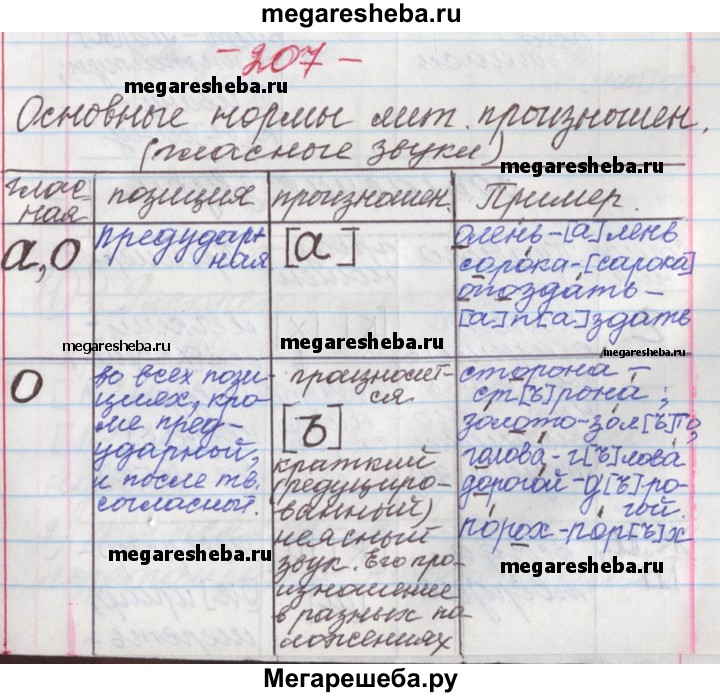 megaresheba.ru
-207-
megaresheba.ru
Основные нормы лит. произношен.
(гласные звуки)
megaresheba.ru
глас-
ная
позиция
произношен.
Пример.
а, о
предудар-
ная
[а]
олень-[а]лень
сорока-[сарока]
опоздать-
[а]п[а]здать
megaresheba.ru
megaresheba.ru
megaresheba.ru
о
во всех пози-
циях, кро-
ме пред-
ударной,
и после тв.
согласной.
произносит-
ся
[ъ]
краткий
(редуциро-
ванный)
неясный
звук. Его про-
изношение
в разных по-
ложениях
сторона-
ст[ъ]рона;
золото-зол[ъ]то,
голова-г[ъ]лова
дорогой-д[ъ]ро-
гой.
порох-пор[ъ]х
megaresheba.ru
megaresheba.ru
Мегарешеба.ру